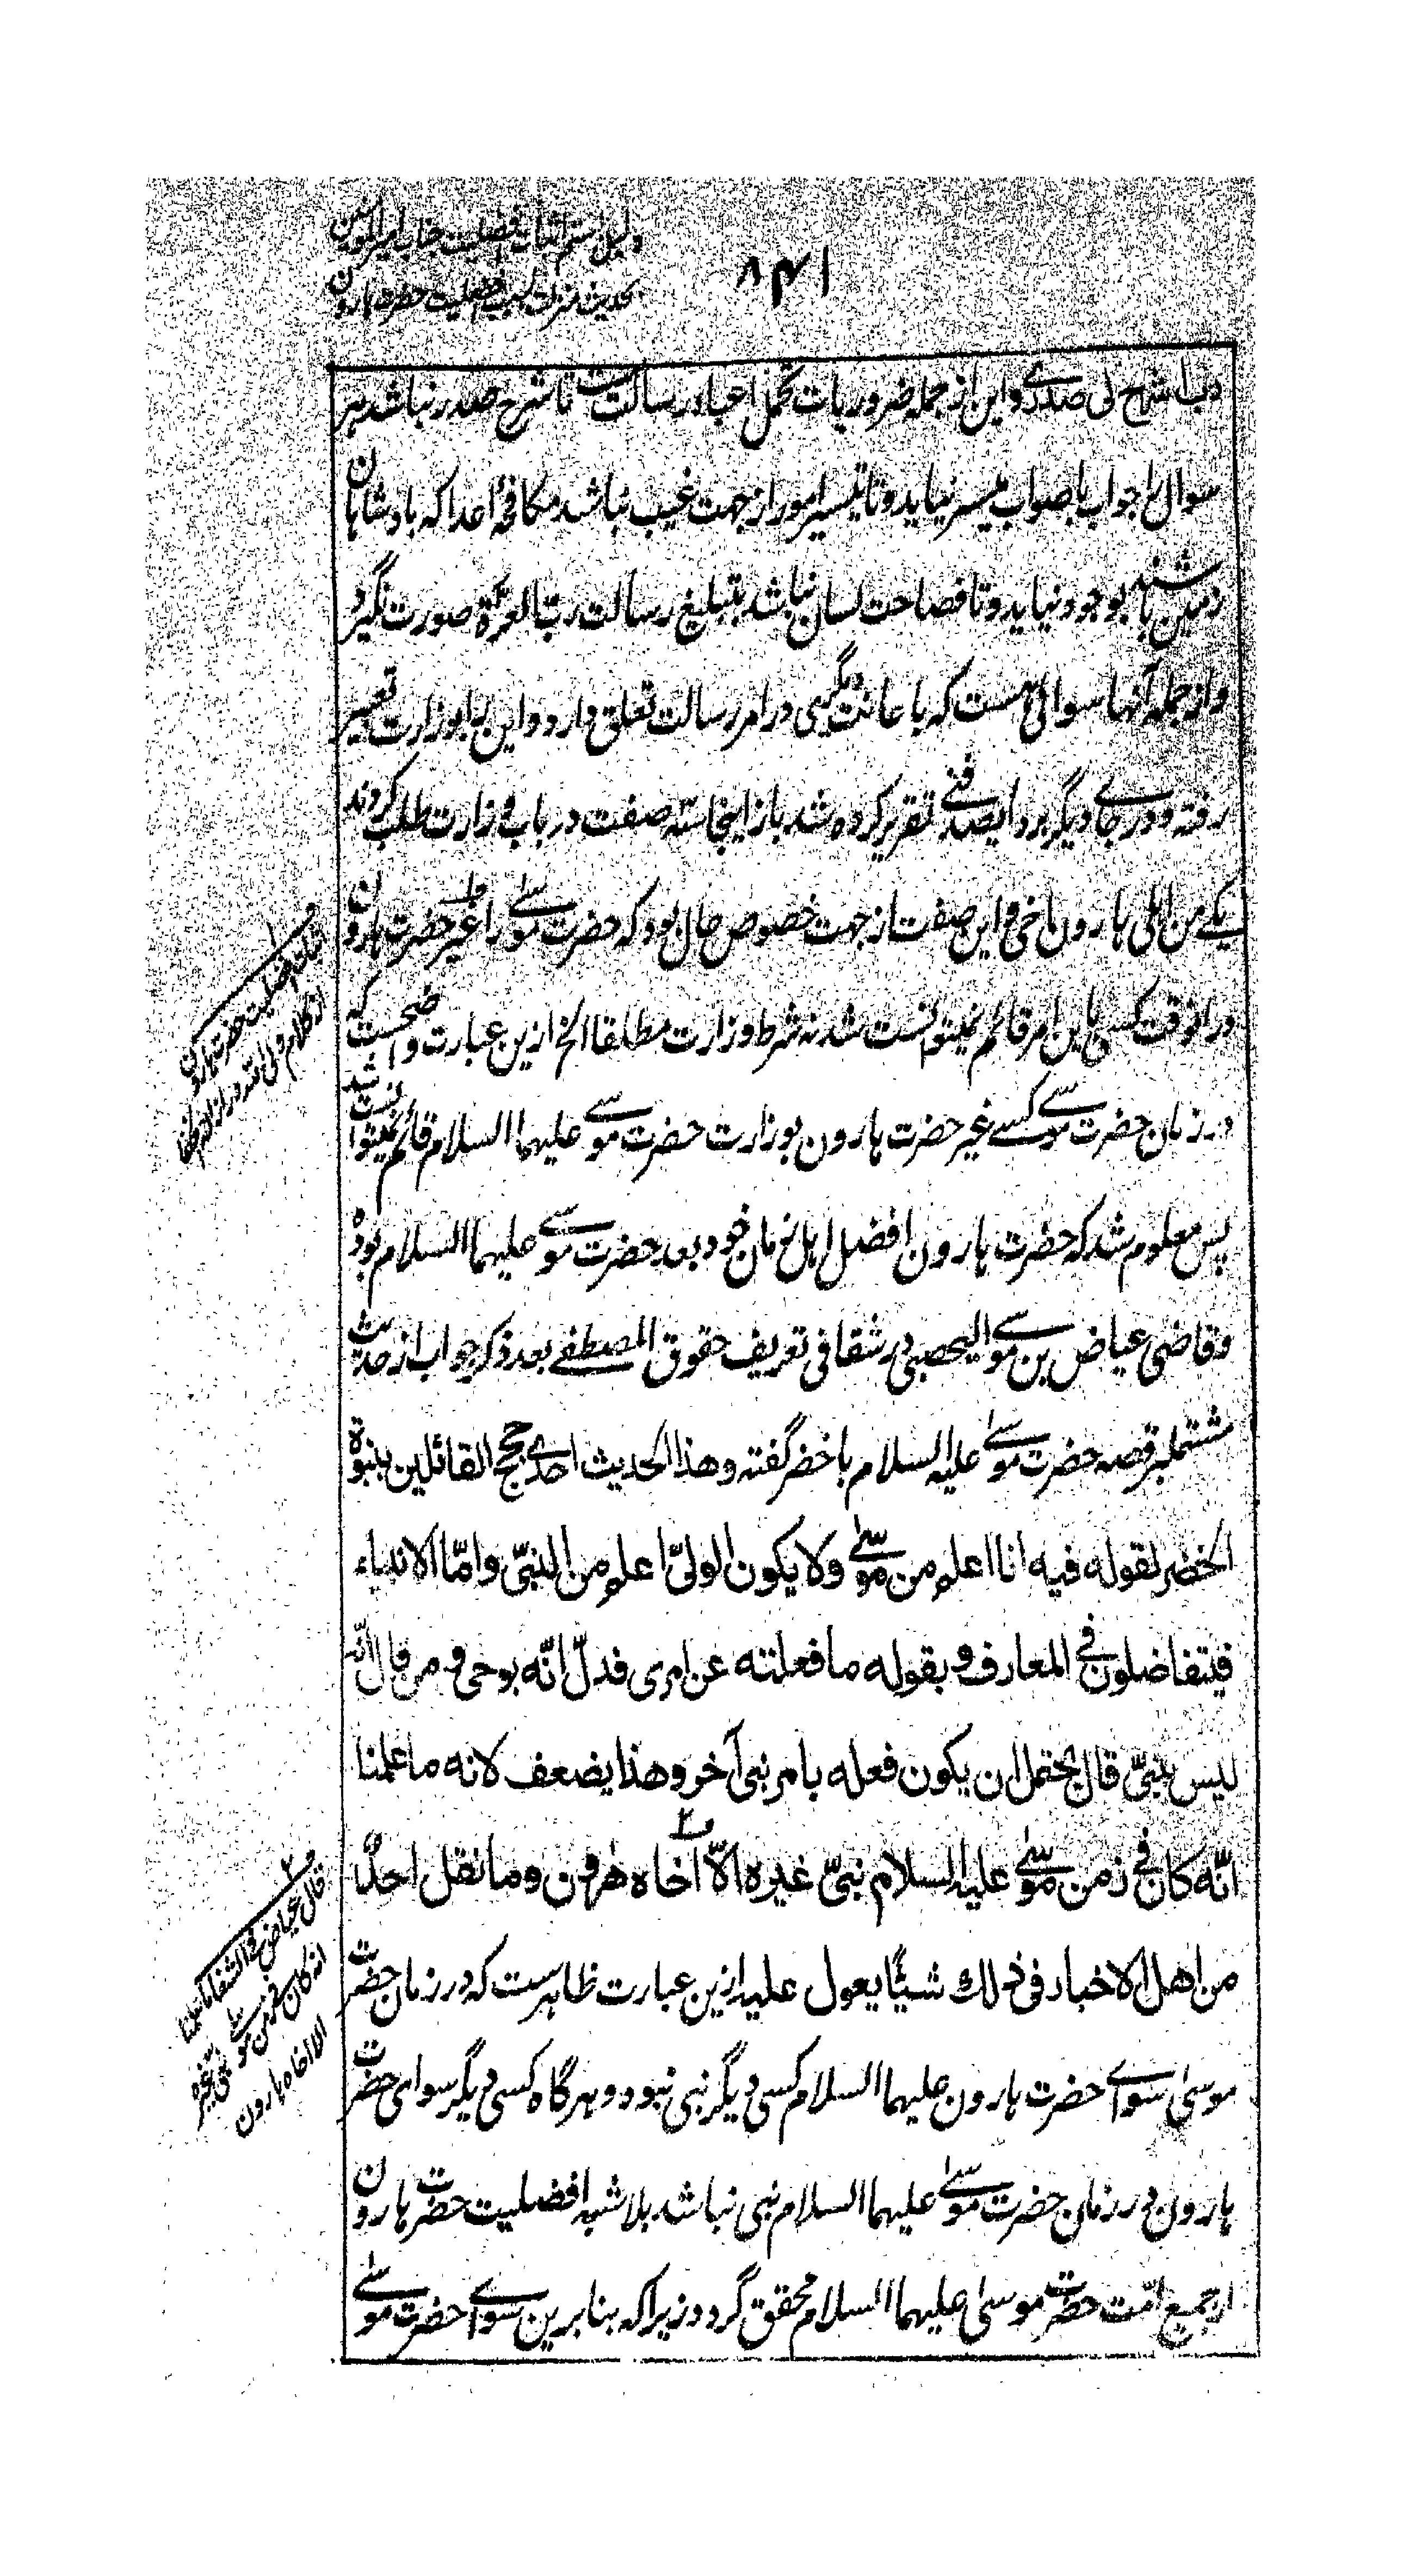 دلیل ستم اثبات افضلیت جناب امیرالمومنین
بحدیث منزلت بسبب افضلیت حضرت هارون
۸۴۱
رب اشرح لی صدری و این از جمله ضروریات تحمل اعباء رسالت ست تا شرح صدر نباشد هر
سوال را جواب باصواب میسر نیاید و تا تیسیر امور از جهت غیب نباشد مکافحهٔ اعدا که بادشاهان
زمین باشند بوجود نیاید و تا فصاحت لسان نباشد تبلیغ رسالت رب العزة صورت نگیرد
و از جمله آنها سوالی هست که باعانت دیگری در امر رسالت تعلق دارد و این را بوزارت تعبیر
رفته و در جای دیگر بردا یصدقنی تقریر کرده شد باز اینجا سه صفت در باب وزارت طلب کردند
یکے من اهلی هارون اخی و این صفت از جهت خصوص حال بود که حضرت موسے را غیر حضرت هارون
در انوقت کسی باین امر قائم نمیتوانست شد نه شرط وزارت مطلقا الخ ازین عبارت واضحست که
در زمان حضرت موسے کسے غیر حضرت هارون بوزارت حضرت موسے علیهما السلام قائم نمیتوانست شد
پس معلوم شد که حضرت هارون افضل اهل زمان خود بعد حضرت موسے علیهما السلام بوده
و قاضی عیاض بن موسے الیحصبی در شفا فی تعریف حقوق المصطفے بعد ذکر جواب از حدیث
مشتملبر قصه حضرت موسےٰ علیه السلام با خضر گفته وهذا الحدیث احدی حجج القائلین بنبوة
الخضر لقوله فیه انا اعلم من موسیٰ ولا یکون الولیّ اعلم من النبیّ وامّا الانبیاء
فیتفاضلون فی المعارف وبقوله ما فعلته عن امری فدلّ انّه بوحی ومن قال انّه
لیس بنبیّ قال یحتمل ان یکون فعله بامر نبی آخر وهذا یضعف لانه ما علمنا
انّه کان فی زمن موسیٰ علیه السلام نبیّ غیره الاّ اخاه هٰرون وما نقل احدٌ
من اهل الاخبار فی ذلك شیئًا یعول علیه ازین عبارت ظاهرست که در زمان حضرت
موسیٰ سوای حضرت هارون علیهما السلام کسی دیگر نبی نبود و هرگاه کسی دیگر سوای حضرت
هارون در زمان حضرت موسےٰ علیهما السلام نبی نباشد بلا شبه افضلیت حضرت هارون
از جمیع امّت حضرت موسیٰ علیهما السلام محقق گردد زیرا که بنابرین سوای حضرت موسےٰ
اثبات افضلیت حضرت هارون
از کلام ولی الله در ازالة الخفا
قال عیاض فی الشفا ما علمنا
انه کان فی زمن موسے نبی غیره
الا اخاه هارون